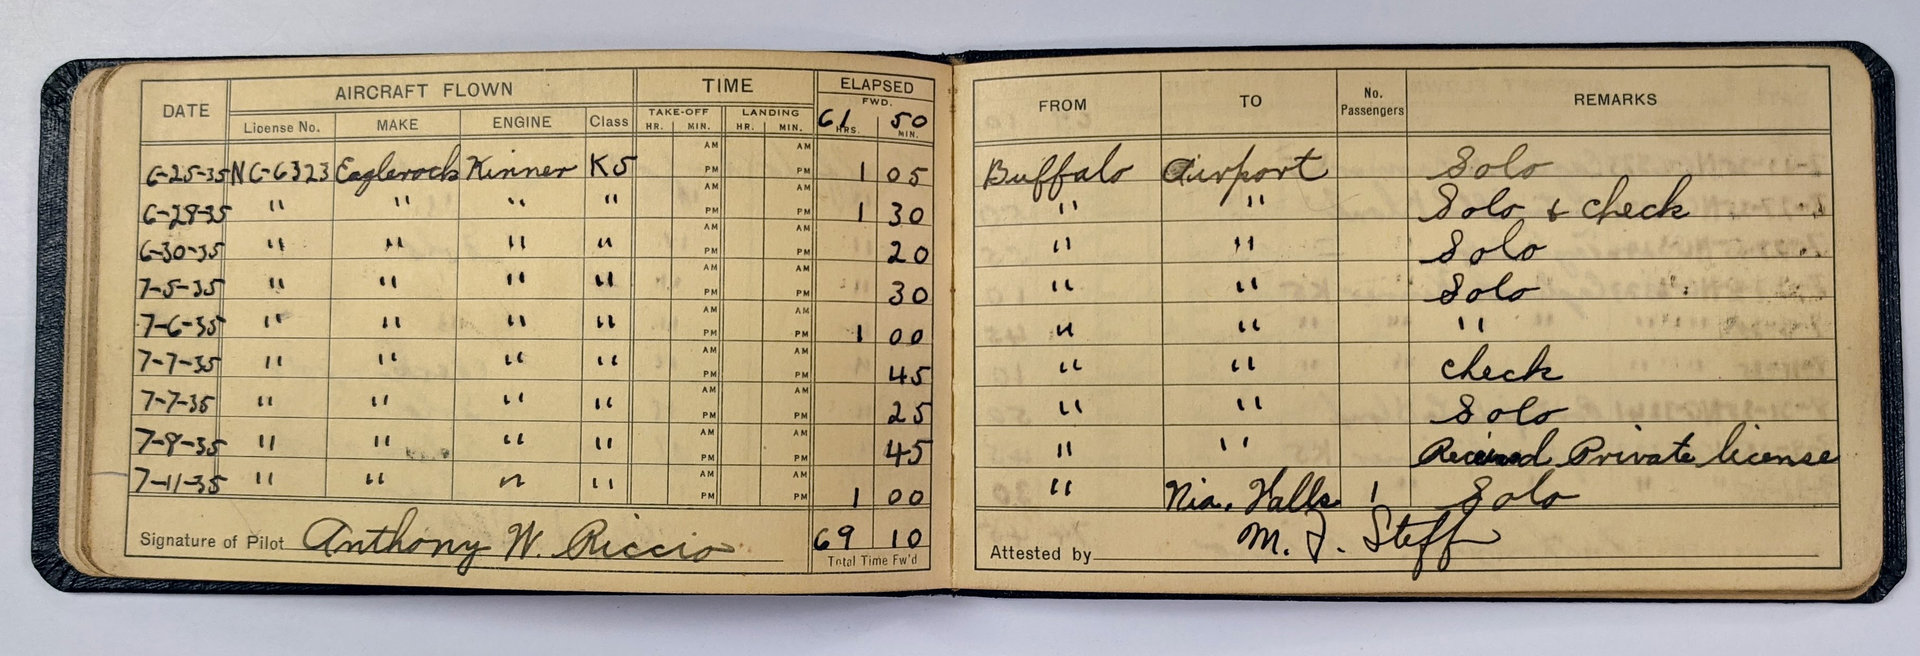 DATE AIRCRAFT FLOWN TIME ELAPSED FROM TO No. Passengers REMARKS
License No. MAKE ENGINE Class TAKE-OFF LANDING FWD.
HR. MIN. HR. MIN. 61 HRS. 50 MIN.
6-25-35 NC-6323 Eaglerock Kinner K5 AM PM AM PM 1 05 Buffalo Airport Solo
6-28-35 " " " " AM PM AM PM 1 30 " " Solo & check
6-30-35 " " " " AM PM AM PM 20 " " Solo
7-5-35 " " " " AM PM AM PM 30 " " Solo
7-6-35 " " " " AM PM AM PM 1 00 " " "
7-7-35 " " " " AM PM AM PM 45 " " check
7-7-35 " " " " AM PM AM PM 25 " " Solo
7-8-35 " " " " AM PM AM PM 45 " " Received Private license
7-11-35 " " " " AM PM AM PM 1 00 " Nia. Falls 1 Solo
Signature of Pilot Anthony W. Riccio 69 10 Attested by M. J. Steff
Total Time Fw'd